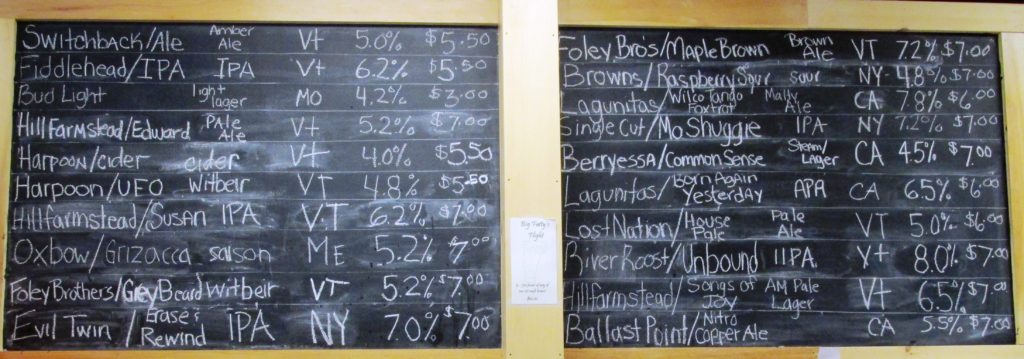 Switchback/Ale Amber Ale Vt 5.0% $5.50
Fiddlehead/IPA IPA Vt 6.2% $5.50
Bud Light light lager MO 4.2% $3.00
Hill Farmstead/Edward Pale Ale Vt 5.2% $7.00
Harpoon/cider cider Vt 4.0% $5.50
Harpoon/UFO witbeir VT 4.8% $5.50
Hillfarmstead/Susan IPA VT 6.2% $7.00
Oxbow/Grizacca saison ME 5.2% 7.00
Foley Brothers/Grey Beard witbeir VT 5.2% $7.00
Evil Twin/Erase & Rewind IPA NY 7.0% $7.00
Big Fatty's Flight
Foley Bro's/Maple Brown Brown Ale VT 7.2% $7.00
Browns/Raspberry Sour sour NY 4.8% $7.00
Lagunitas/Wilco Tango Foxtrot Malty Ale CA 7.8% $6.00
Single Cut/Mo Shuggie IPA NY 7.2% $7.00
Berryessa/Common Sense Steam/Lager CA 4.5% $7.00
Lagunitas/Born Again Yesterday APA CA 6.5% $6.00
Lost Nation/House Pale Pale Ale VT 5.0% $6.00
River Roost/Unbound IIPA Vt 8.0% $7.00
Hillfarmstead/Songs of Joy AM Pale Lager Vt 6.5% $7.00
Ballast Point/Nitro Copper Ale CA 5.5% $7.00